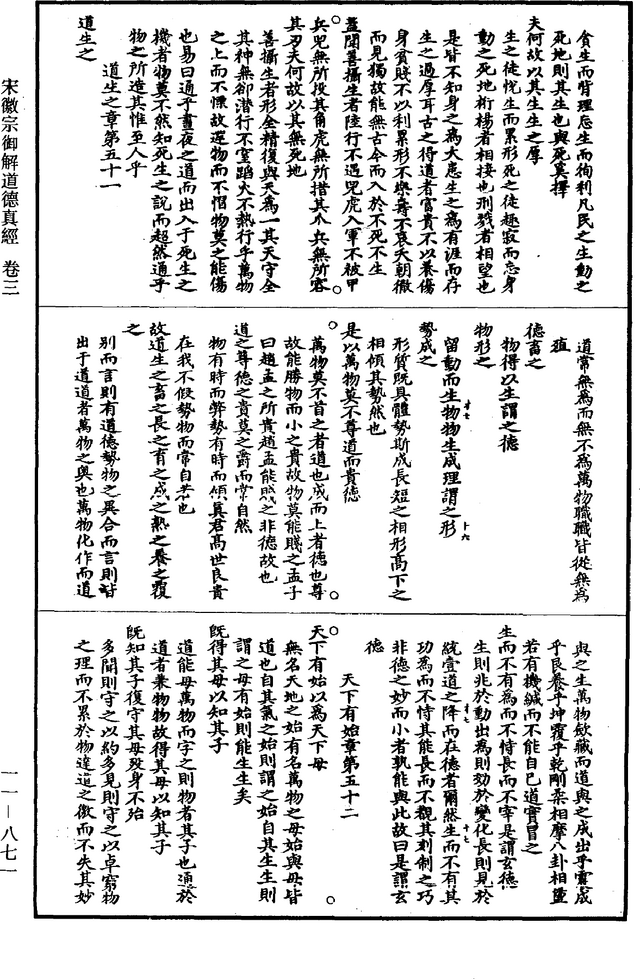 宋徽宗御解道德真經　卷三
一一—八七一
貪生而背理忘生而徇利凡民之生動之
死地則其生也與死奚擇
夫何故以其生生之厚
生之徒悅生而累形死之徒趣寂而忘身
動之死地桁楊者相接也刑戮者相望也
是皆不知身之為大患生之為有涯而存
生之過厚耳古之得道者富貴不以養傷
身貧賤不以利累形不樂壽不哀夭朝徹
而見獨故能無古今而入於不死不生
蓋聞善攝生者陸行不遇兕虎入軍不被甲
兵兕無所投其角虎無所措其爪兵無所容
其刃夫何故以其無死地
善攝生者形全精復與天為一其天守全
其神無卻潛行不窒蹈火不熱行乎萬物
之上而不慄故遻物而不慴物莫之能傷
也易曰通乎晝夜之道而出入于死生之
機者物莫不然知死生之說而超然通乎
物之所造其惟至人乎
道生之章第五十一
道生之
道常無為而無不為萬物職職皆從無為
殖
德畜之
物得以生謂之德
物形之
留動而生物物生成理謂之形
勢成之
形質既具體勢斯成長短之相形高下之
相傾其勢然也
是以萬物莫不尊道而貴德
萬物莫不首之者道也成而上者德也尊
故能勝物而小之貴故物莫能賤之孟子
曰趙孟之所貴趙孟能賤之非德故也
道之尊德之貴莫之爵而常自然
物有時而弊勢有時而傾真君高世良貴
在我不假勢物而常自若也
故道生之畜之長之育之成之熟之養之覆
之
別而言則有道德勢物之異合而言則皆
出于道道者萬物之奧也萬物化作而道
與之生萬物歛藏而道與之成出乎震成
乎艮養乎坤覆乎乾剛柔相摩八卦相盪
若有機緘而不能自已道實冒之
生而不有為而不恃長而不宰是謂玄德
生則兆於動出為則効於變化長則見於
統壹道之降而在德者爾然生而不有其
功為而不恃其能長而不覩其刻制之巧
非德之妙而小者孰能與此故曰是謂玄
德
天下有始章第五十二
天下有始以為天下母
無名天地之始有名萬物之母始與母皆
道也自其氣之始則謂之始自其生生則
謂之母有始則能生生矣
既得其母以知其子
道能母萬物而字之則物者其子也通於
道者兼物物故得其母以知其子
既知其子復守其母歿身不殆
多聞則守之以約多見則守之以卓窮物
之理而不累於物達道之徼而不失其妙